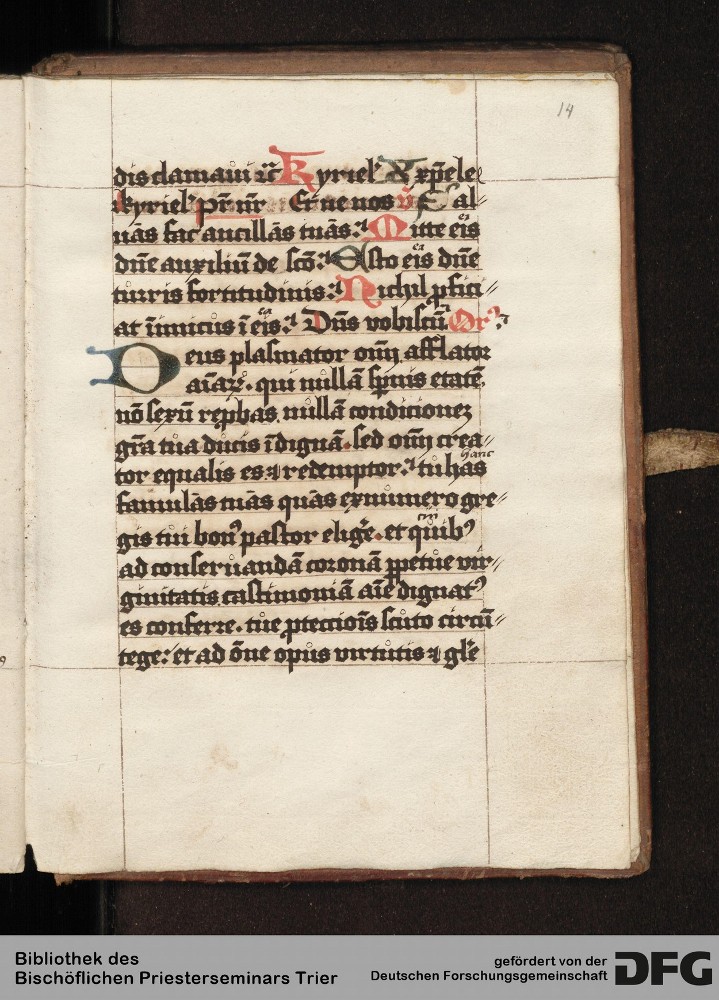 14
dis clamaui ⁊c̄ Kyriel' Xp̄ele
kyriel' pr̄ nr̄ Et ne nos v̄ Sal⸗
uas fac ancillas tuas: Mitte eis
dn̄e auxiliū de sc̄o: Esto eis dn̄e
turris fortitudinis: Nichil ꝓfici⸗
at īimicus ī eis: Dn̄s vobiscū. Or̄
Deus plasmator om̄ afflator
aīaꝝ. qui nullā sp̄nis etatē,
nō sexū rep̄bas. nullā condicionez
gr̄a tua ducis īdignā. sed om̄ crea⸗
tor equalis es ⁊ redemptor: tu has
hanc
famulas tuas quas ex numero gre⸗
gis tui bonꝰ pastor eliḡe. et quibꝰ
ad conseruandā coronā ꝑpetue vir⸗
ginitatis. castimoniā aīe dignatꝰ
es conferre. tue ꝓteccioīs scuto circū⸗
tege: et ad ōne opus virtutis ⁊ gl̄e
Bibliothek des
Bischöflichen Priesterseminars Trier
gefördert von der
Deutschen Forschungsgemeinschaft
DFG